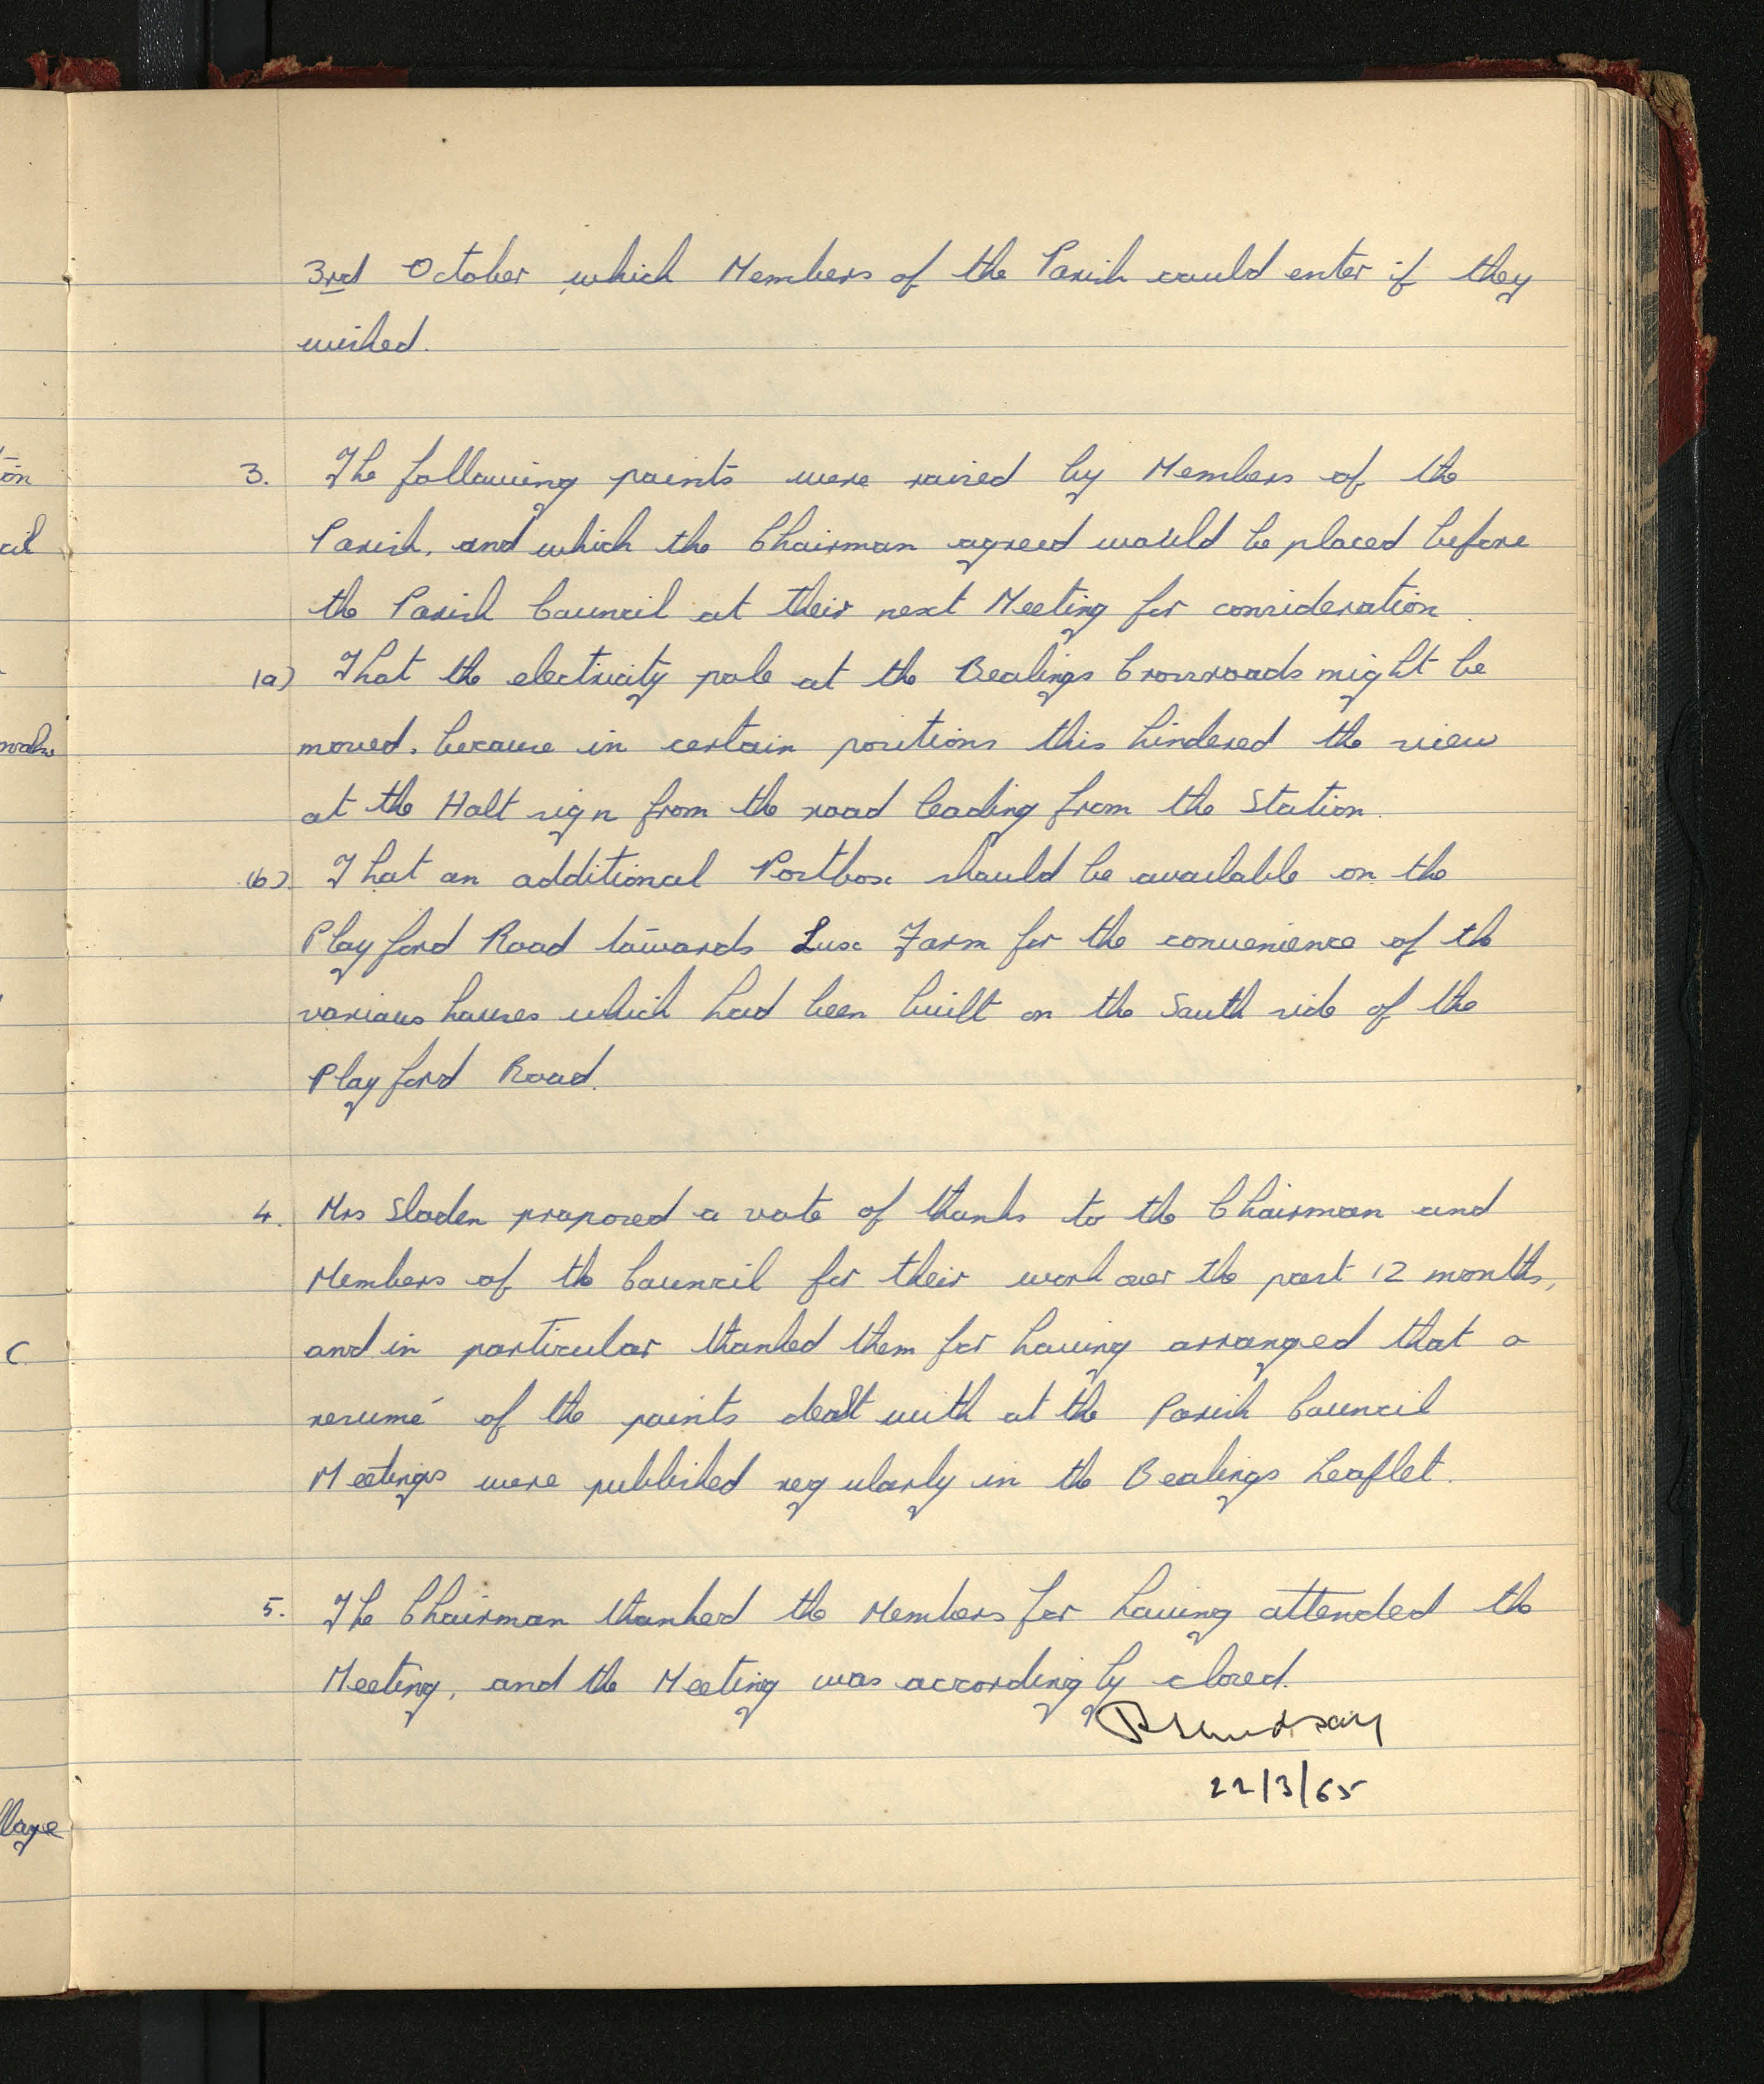 3rd October which Members of the Parish could enter if they
wished.
3. The following points were raised by Members of the
Parish, and which the Chairman agreed would be placed before
the Parish Council at their next Meeting for consideration.
(a) That the electricity pole at the Bealings Crossroads might be
moved, because in certain positions this hindered the view
at the Halt sign from the road leading from the Station.
(b) That an additional Postbox should be available on the
Playford Road towards Lux Farm for the convenience of the
various houses which had been built on the South side of the
Playford Road.
4. Mrs Sladen proposed a vote of thanks to the Chairman and
Members of the Council for their work over the past 12 months,
and in particular thanked them for having arranged that a
resumé of the points dealt with at the Parish Council
Meetings were published regularly in the Bealings Leaflet.
5. The Chairman thanked the Members for having attended the
Meeting, and the Meeting was accordingly closed.
22/3/65